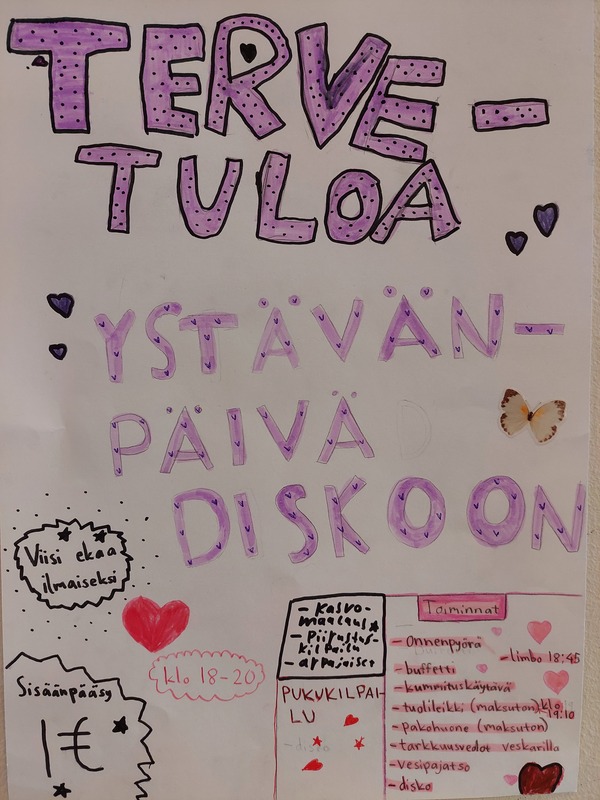 TERVE-
TULOA
YSTÄVÄN-
PÄIVÄ
DISKOON
Viisi ekaa
ilmaiseksi
klo 18-20
Sisäänpääsy
1€
- Kasvo-
maalaus
- Piirustus-
kilpailu
- arpajaiset
PUKUKILPAI-
LU
- disko
Toiminnat
- Onnenpyörä
- limbo 18:45
- buffetti
- kummituskäytävä
- tuolileikki (maksuton) klo
19:10
- pakohuone (maksuton)
- tarkkuusvedot veskarilla
- vesipajatso
- disko